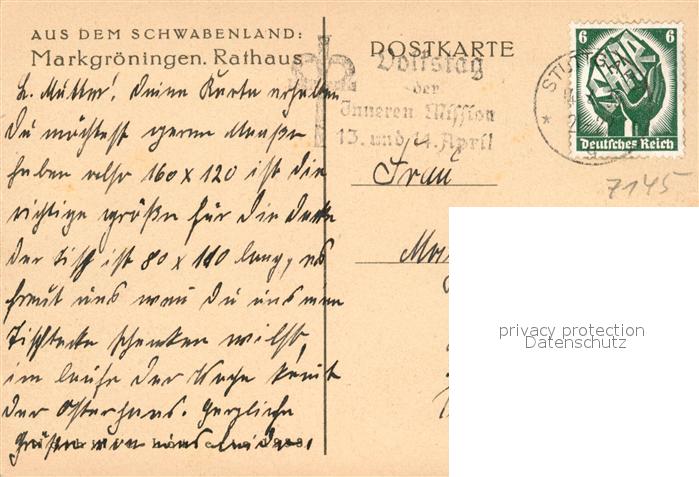 AUS DEM SCHWABENLAND:
Markgröningen. Rathaus
L. Mutter! Deine Karte erhalten
Du möchtest gerne Maaße
haben also 160 x 120 ist die
richtige größe für die Decke
der Tisch ist 80 x 110 lang, es
freut uns wen Du uns eine
Tischdecke schenken willst,
im laufe der Woche kommt
der Osterhaas. Herzliche
Grüße von uns beiden.
POSTKARTE
Volkstag
der
Inneren Mission
13. und 14. April
STUTTG
6 6
SAAR
Deutsches Reich
7145
Frau
privacy protection
Datenschutz